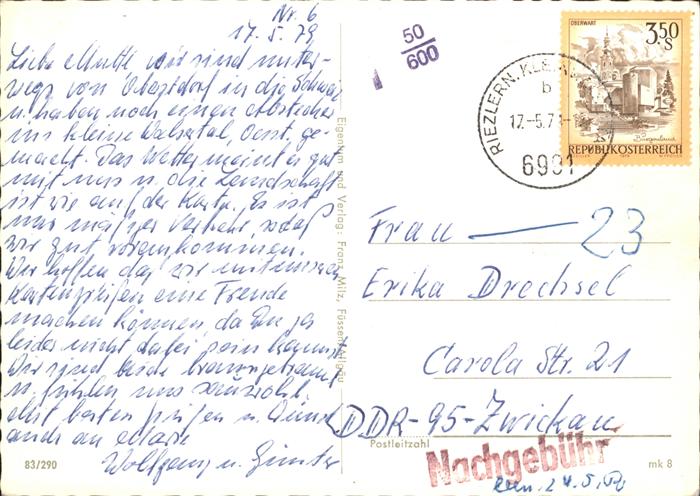 Nr. 6
17. 5. 79
Liebe Mutti wir sind unter-
wegs von Oberstdorf in die Schweiz
u. haben noch einen Abstecher
ins kleine Walsertal, Oest. ge-
macht. Das Wetter meint es gut
mit uns u. die Landschaft
ist wie auf der Karte. Es ist
nur mäßiger Verkehr, sodaß
wir gut vorankommen.
Wir hoffen das wir mit unseren
Kartengrüßen eine Freude
machen können, da Du ja
leider nicht dabei sein kannst.
Wir sind beide braungebrannt
u. fühlen uns sauwohl.
Mit besten Grüßen u.
auch an
Wolfgang u. Günter
83/290
Eigentum und Verlag: Franz Milz, Füssen/Allgäu
50
600
RIEZLERN, KLE
b
17.-5.7
6991
OBERWART
3,50 S
Burgenland
REPUBLIK ÖSTERREICH
Frau — 23
Erika Drechsel
Carola Str. 21
DDR-95-Zwickau
Postleitzahl
Nachgebühr
mk 8